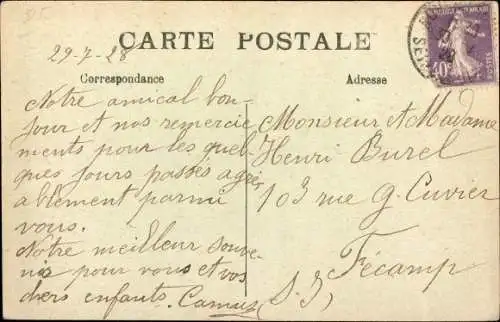 29-7-28
CARTE POSTALE
Correspondance
Adresse
Notre amical bon-
jour et nos remercie
ments pour les quel-
ques jours passés agré
ablement parmi
vous.
Notre meilleur souve-
nir pour vous et vos
chers enfants. Camus
Monsieur et Madame
Henri Burel
103 rue G. Cuvier
Fécamp
(S. I)
40c
POSTES